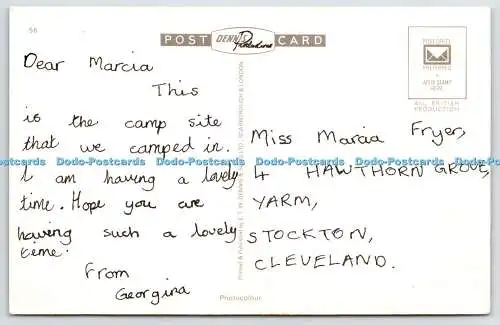 56
POST DENNIS Productions CARD
POSTCARD
PREFERRED
AFFIX STAMP
HERE
ALL BRITISH
PRODUCTION
Dear Marcia
This
is the camp site
that we camped in.
I am having a lovely
time. Hope you are
having such a lovely
time.
From
Georgina
Printed & Published by E. T. W. DENNIS & SONS LTD., SCARBOROUGH & LONDON
Miss Marcia Fryer,
4 HAWTHORN GROVE,
YARM,
STOCKTON,
CLEVELAND.
Photocolour
Dodo-Postcards Dodo-Postcards Dodo-Postcards Dodo-Postcards Dodo-Postcards